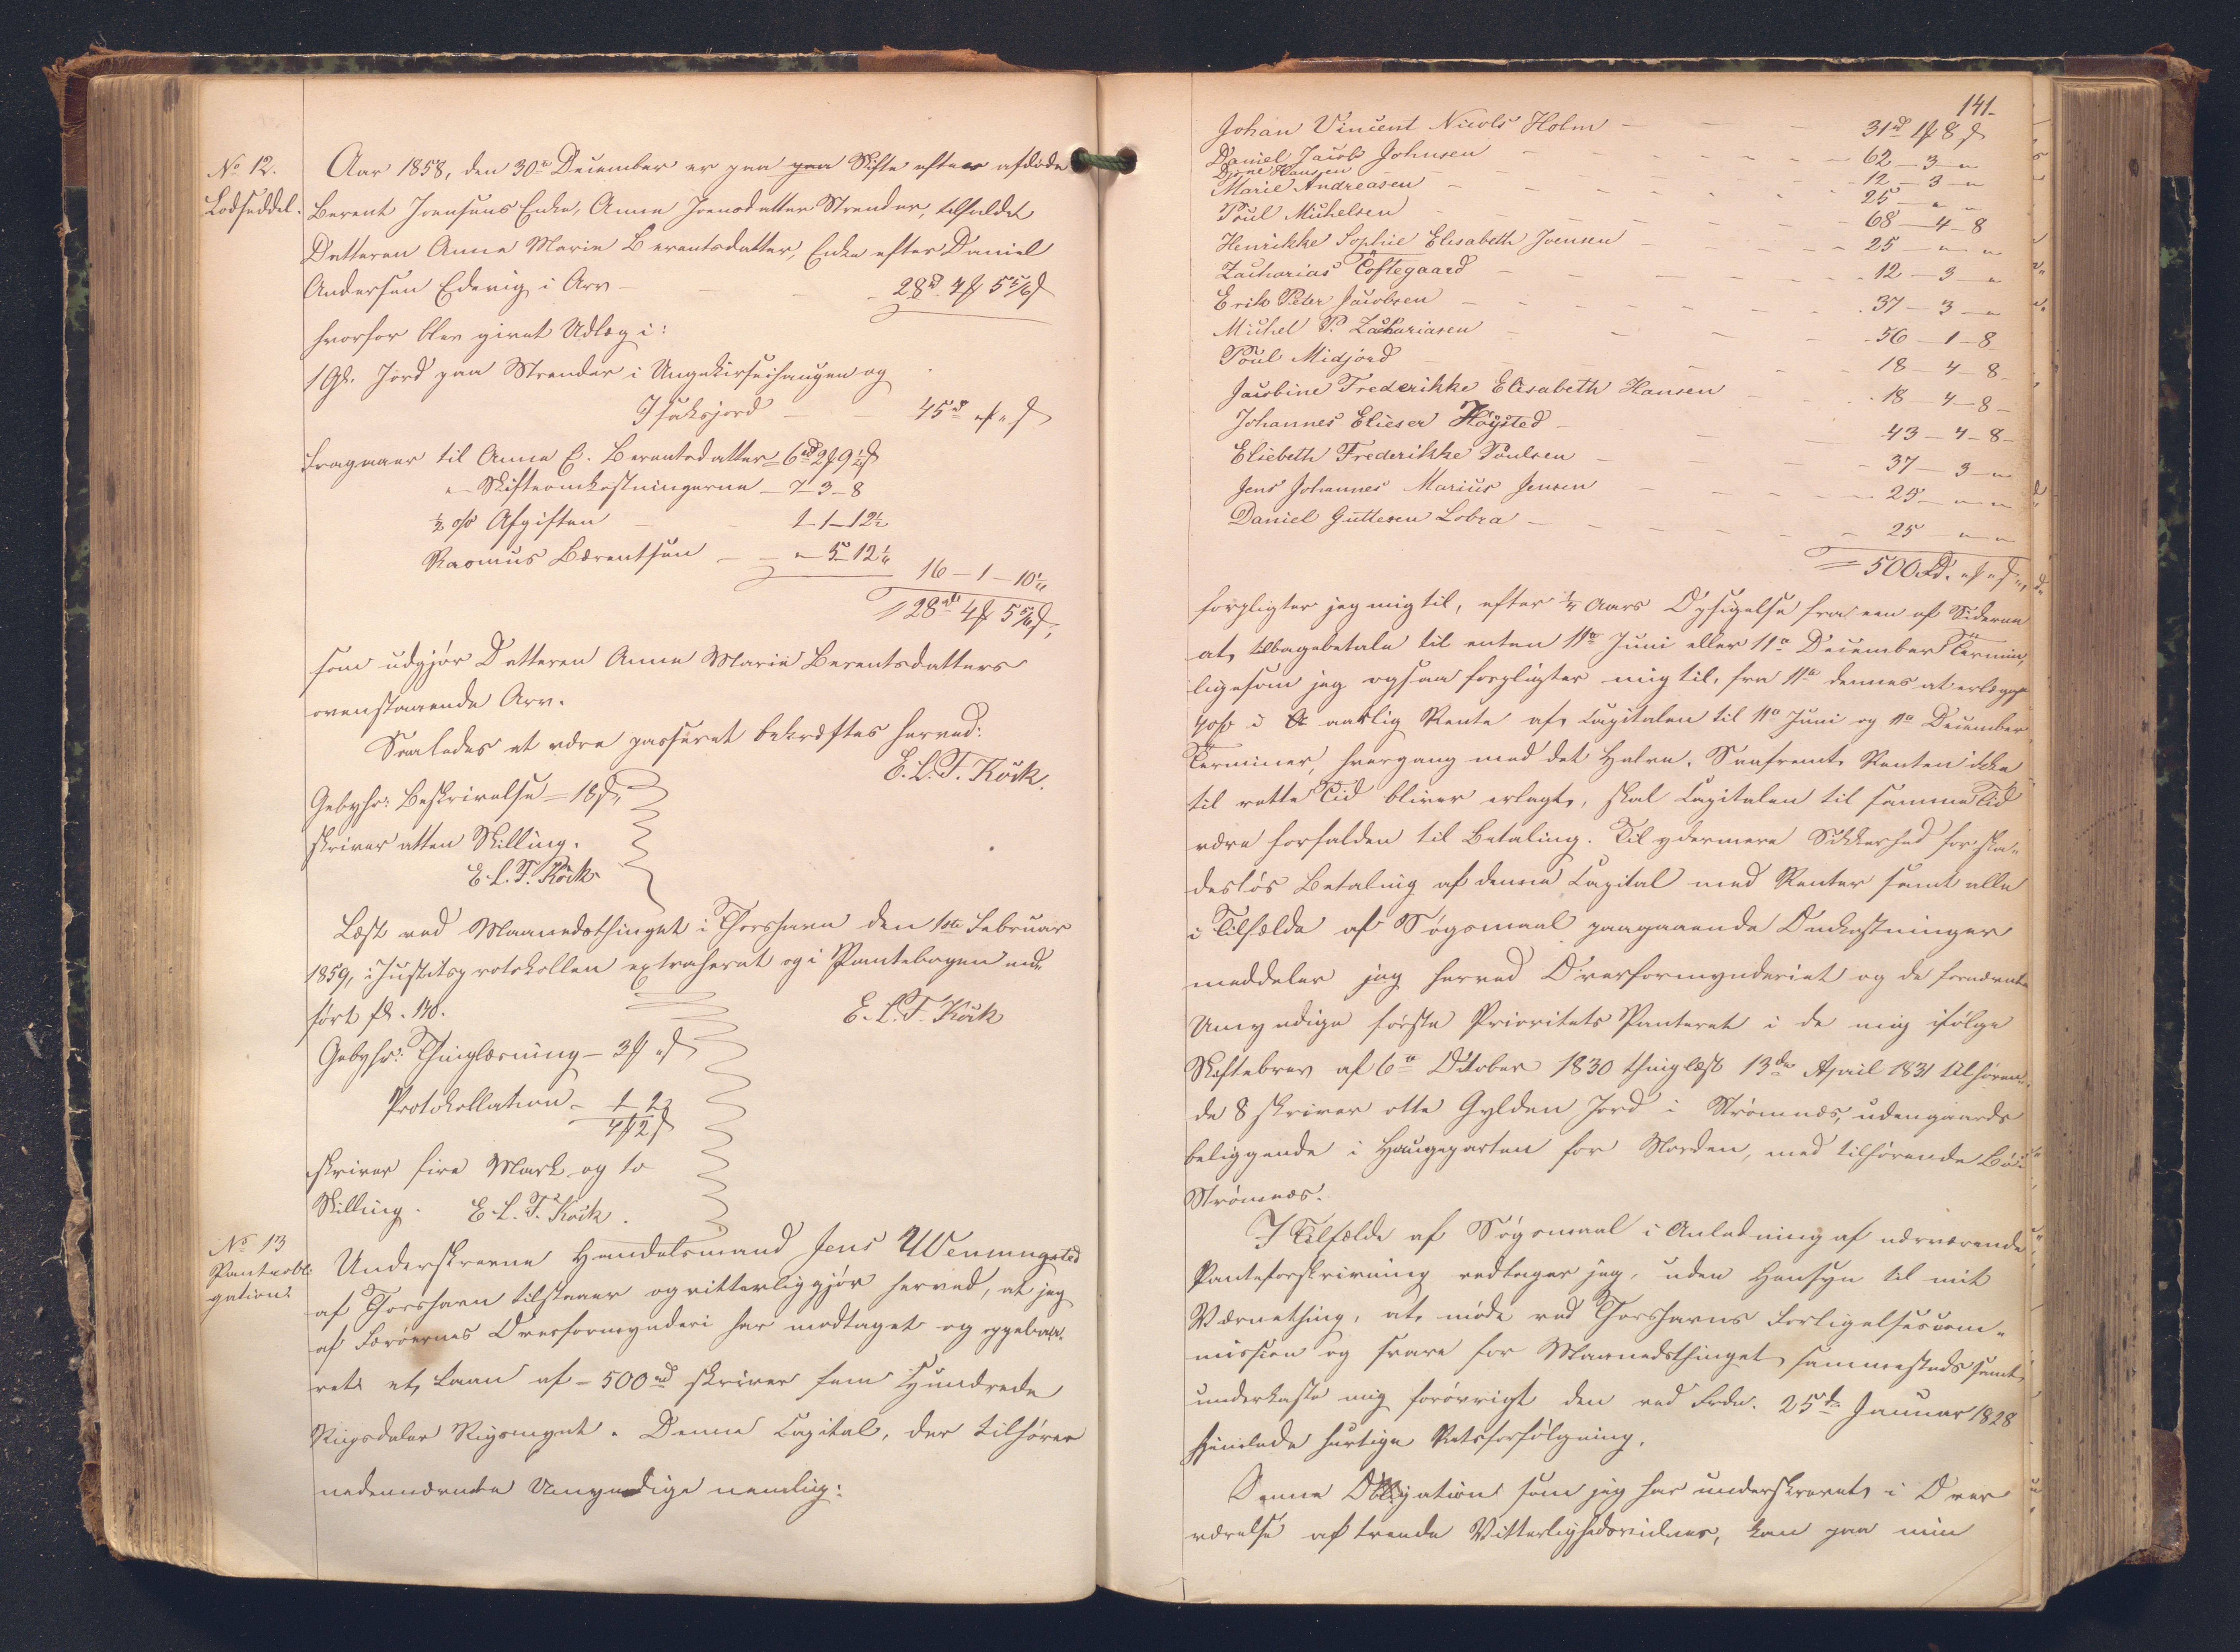 No 12.
Lodseddel.
Aar 1858, den 30te December er paa paa Skifte efter afdøde
Berent Joensens Enke, Anne Joensdatter Strender, tilfaldet
Datteren Anne Marie Berentsdatter, Enke efter Daniel
Andersen Ederig i Arv - - - 28rd 4ß 5 5/16ß
hvorfor blev givet Udlæg i:
1 Gl. Jord paa Strender i og
Isaksjord - - 45rd "ß "ß
Fragaaer til Anne E. Berentsdatter = 6rd 2ß 9½ß
" Skifteomkostningerne - 7 - 3 - 8
½ o/o Afgiften - 1 - 1 - 12½
Rasmus Bærentsen - - " - 5 - 12¼
16 - 1 - 10¼
28rd 4ß 5 5/16ß,
som udgjør Datteren Anne Marie Berentsdatters
ovenstaaende Arv.
Saaledes at være passeret bekræftes herved:
E. L. T. Köck.
Gebyhr: Beskrivelse = 18ß,
skriver atten Skilling.
E. L. T. Köck
Læst ved Maanedsthinget i Thorshavn den 1ste Februar
1859, i Justitsprotokollen extraheret og i Pantebogen ind-
ført fol. 140.
E. L. T. Köck
Gebyhr: Thinglæsning - 3ß "ß
Protokollation - 1 - 2
4ß 2ß
skriver fire Mark og to
Skilling. E. L. T. Köck.
No 13
Panteobli-
gation.
Underskrevne Handelsmand Jens Wenningsted
af Thorshavn tilstaaer og vitterliggjør herved, at jeg
af Færöernes Overformynderi har modtaget og oppebaa-
ret et Laan af - 500rd skriver fem Hundrede
Rigsdaler Rigsmynt. Denne Capital, der tilhører
nedennævnte Umyndige nemlig:
141.
Johan Vincent Nicols Holm - - - 31rd 1ß 8ß
Daniel Jacob Johnsen - - - 62 - 3 - "
Djone Hansen - - - 12 - 3 - "
Marie Andreasen - - - 25 - " - "
Poul Michelsen - - - 68 - 4 - 8
Henrikke Sophie Elisabeth Joensen - - - 25 - " - "
Zacharias Toftegaard - - - 12 - 3 - "
Erik Peter Jacobsen - - - 37 - 3 - "
Michel P. Zachariasen - - - 56 - 1 - 8
Poul Midjord - - - 18 - 4 - 8
Jacobine Frederikke Elisabeth Hansen - - - 18 - 4 - 8 -
Johannes Elieser Høysted - - - 43 - 4 - 8 -
Elsebeth Frederikke Poulsen - - - 37 - 3 - "
Jens Johannes Marius Jensen - - - 25 - " - "
Daniel Guttesen Lobra - - - 25 - " - "
= 500 Rd. "ß "ß,
forpligter jeg mig til, efter ¼ Aars Opsigelse fra een af Siderne
at tilbagebetale til enten 11te Juni eller 11te December Termin,
ligesom jeg ogsaa forpligter mig til, fra 11te dennes at erlægge
4 o/o i aarlig Rente af Capitalen til 11te Juni og 11te December
Terminer, hvergang med det Halve. Saafremt Renten ikke
til rette Tid bliver erlagt, skal Capitalen til samme Tid
være forfalden til Betaling. Til ydermere Sikkerhed for ska-
desløs Betaling af denne Capital med Renter samt alle
i Tilfælde af Søgsmaal paagaaende Omkostninger
meddeler jeg herved Overformynderiet og de fornævnte
Umyndige første Prioritets Panteret i de mig ifølge
Skiftebrev af 6te Oktober 1830 thinglæst 13de April 1831 tilhøren-
de 8 skriver otte Gylden Jord i Strømnæs, udengaards
beliggende i Haugeparten for Norden, med tilhørende Bø i
Strømnæs.
I Tilfælde af Søgsmaal i Anledning af nærværende
Panteforskrivning vedtager jeg, uden Hensyn til mit
Værnething, at møde ved Thorshavns Forligelsescom-
mission og svare for Maanedsthinget sammesteds samt
underkaste mig forøvrigt den ved Frdn. 25de Januar 1828
hjemlede hurtige Retsforfølgning.
Denne Obligation som jeg har underskrevet i Over-
værelse af tvende Vitterlighedsvidner, kan paa min